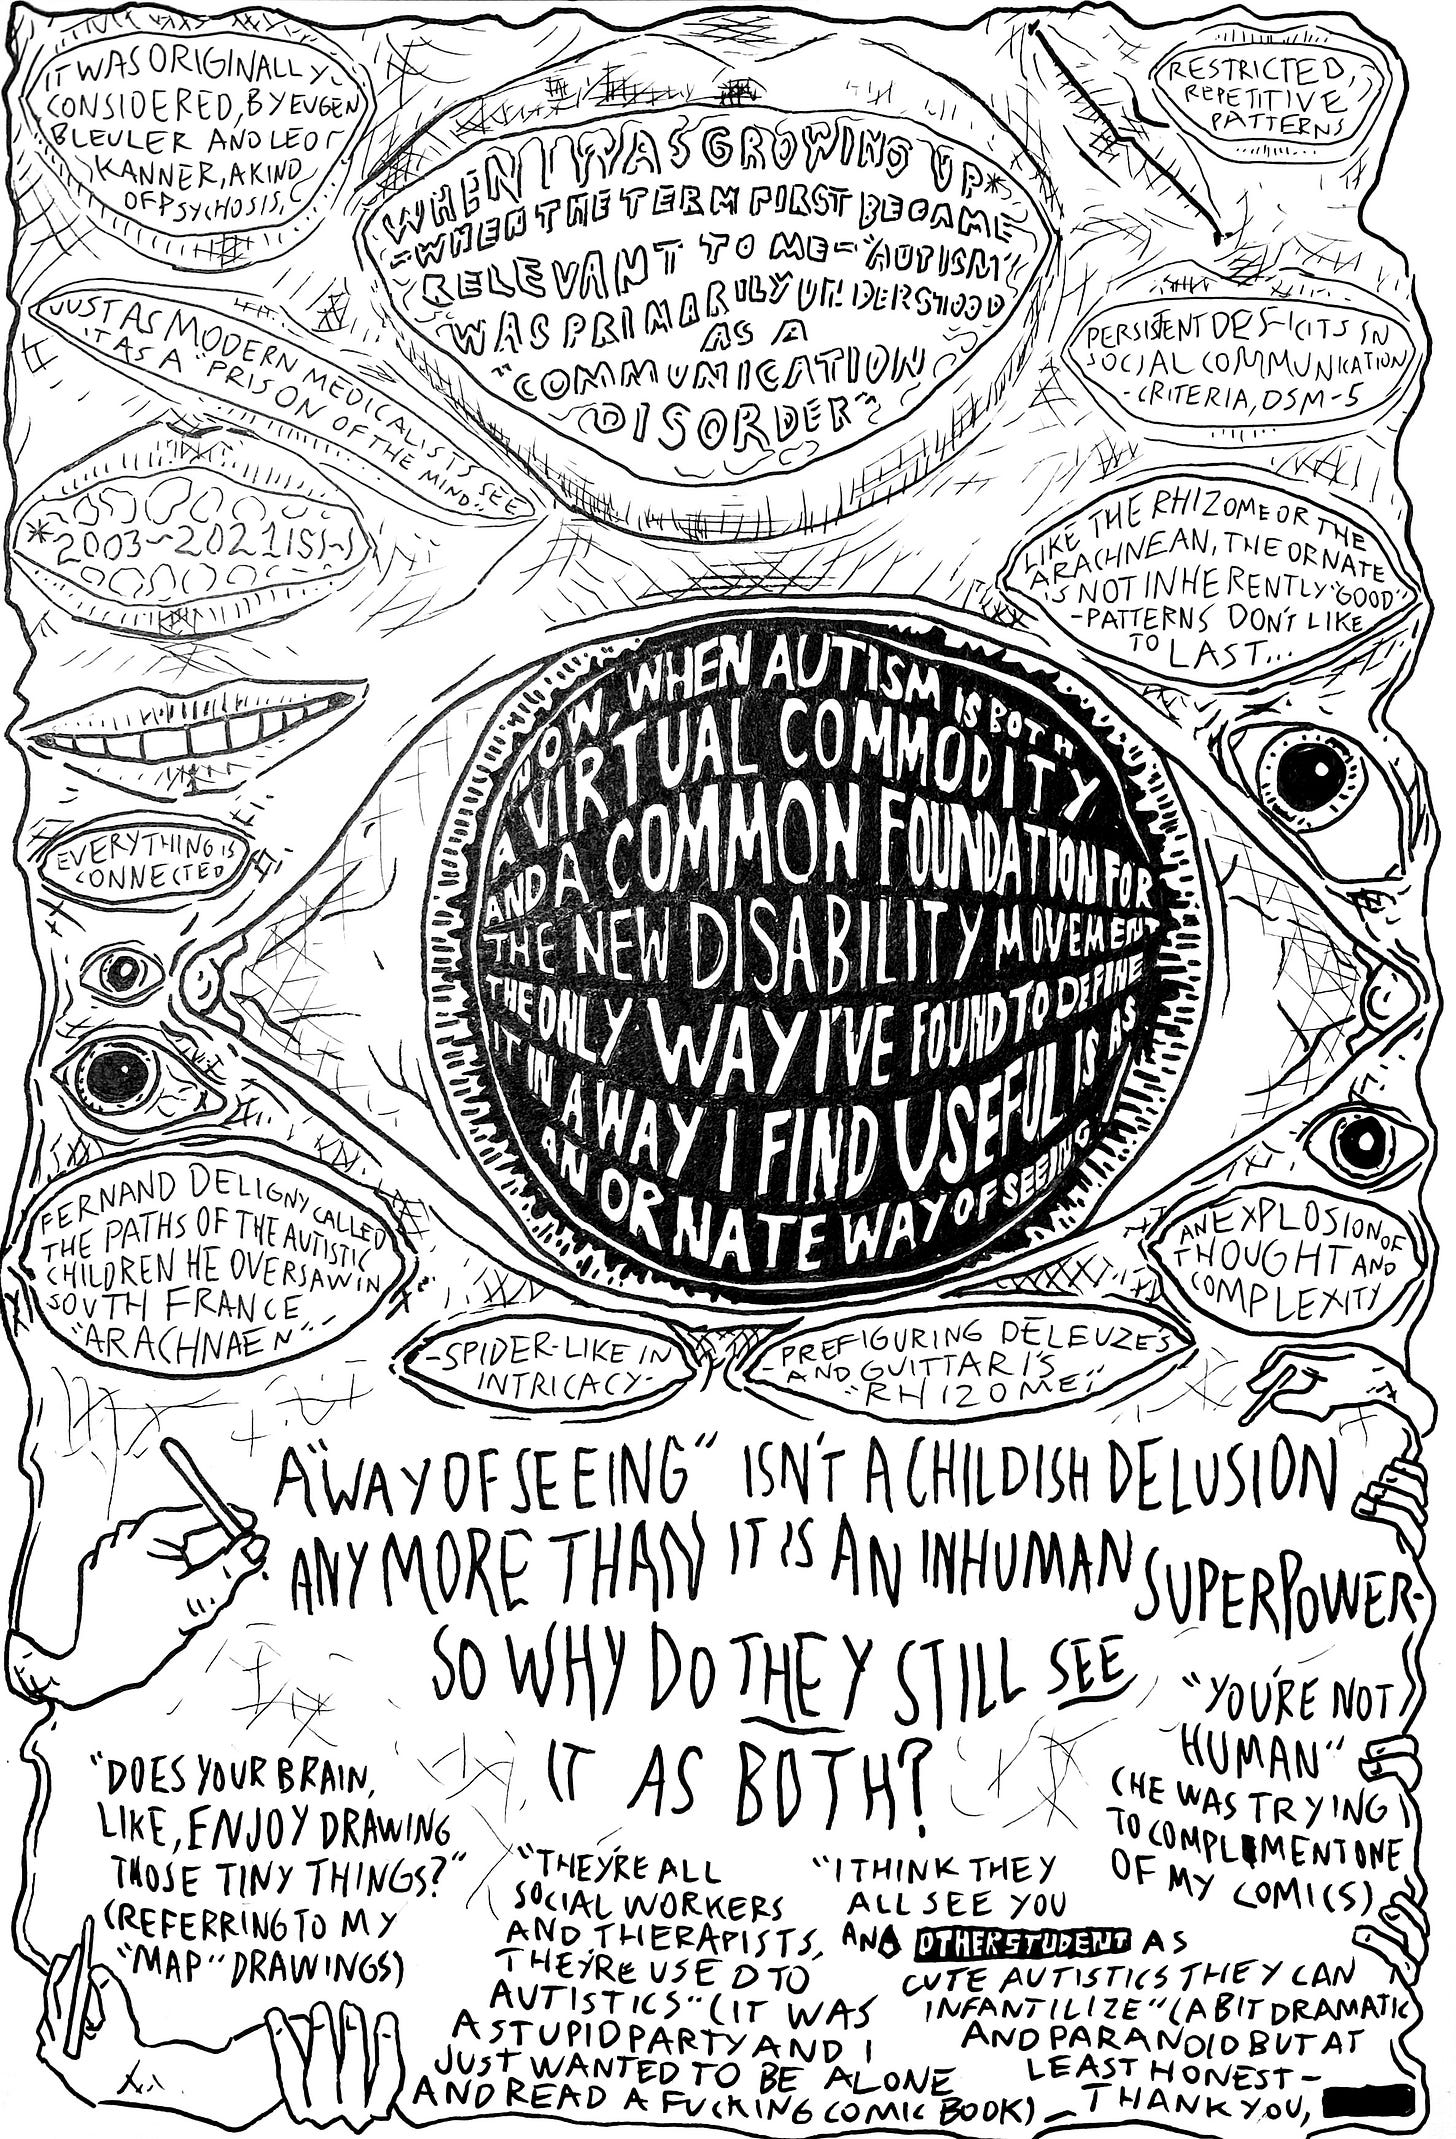 IT WAS ORIGINALLY
CONSIDERED, BY EUGEN
BLEULER AND LEO
KANNER, A KIND
OF PSYCHOSIS,
WHEN I WAS GROWING UP*
-WHEN THE TERM FIRST BECAME
RELEVANT TO ME- "AUTISM"
WAS PRIMARILY UNDERSTOOD
AS A
"COMMUNICATION
DISORDER"
RESTRICTED,
REPETITIVE
PATTERNS
JUST AS MODERN MEDICALISTS SEE
IT AS A "PRISON OF THE MIND."
PERSISTENT DEFICITS IN
SOCIAL COMMUNICATION
-CRITERIA, DSM-5
*2003-2021ISH
LIKE THE RHIZOME OR THE
ARACHNEAN, THE ORNATE
IS NOT INHERENTLY "GOOD"
-PATTERNS DON'T LIKE
TO LAST...
NOW, WHEN AUTISM IS BOTH
A VIRTUAL COMMODITY
AND A COMMON FOUNDATION FOR
THE NEW DISABILITY MOVEMENT
THE ONLY WAY I'VE FOUND TO DEFINE
IT IN A WAY I FIND USEFUL IS AS
AN ORNATE WAY OF SEEING
EVERYTHING IS
CONNECTED
FERNAND DELIGNY CALLED
THE PATHS OF THE AUTISTIC
CHILDREN HE OVERSAW IN
SOUTH FRANCE
"ARACHNAEN"--
-SPIDER-LIKE IN
INTRICACY-
-PREFIGURING DELEUZE'S
AND GUITTARI'S
"RHIZOME"
AN EXPLOSION OF
THOUGHT AND
COMPLEXITY
A "WAY OF SEEING" ISN'T A CHILDISH DELUSION
ANYMORE THAN IT IS AN INHUMAN SUPERPOWER-
SO WHY DO THEY STILL SEE
IT AS BOTH?
"DOES YOUR BRAIN,
LIKE, ENJOY DRAWING
THOSE TINY THINGS?"
(REFERRING TO MY
"MAP" DRAWINGS)
"THEY'RE ALL
SOCIAL WORKERS
AND THERAPISTS,
THEY'RE USED TO
AUTISTICS" (IT WAS
A STUPID PARTY AND I
JUST WANTED TO BE ALONE
AND READ A FUCKING COMIC BOOK)
"I THINK THEY
ALL SEE YOU
AND OTHER STUDENT AS
CUTE AUTISTICS THEY CAN
INFANTILIZE" (A BIT DRAMATIC
AND PARANOID BUT AT
LEAST HONEST-
-THANK YOU,
"YOU'RE NOT
HUMAN"
(HE WAS TRYING
TO COMPLEMENT ONE
OF MY COMICS)